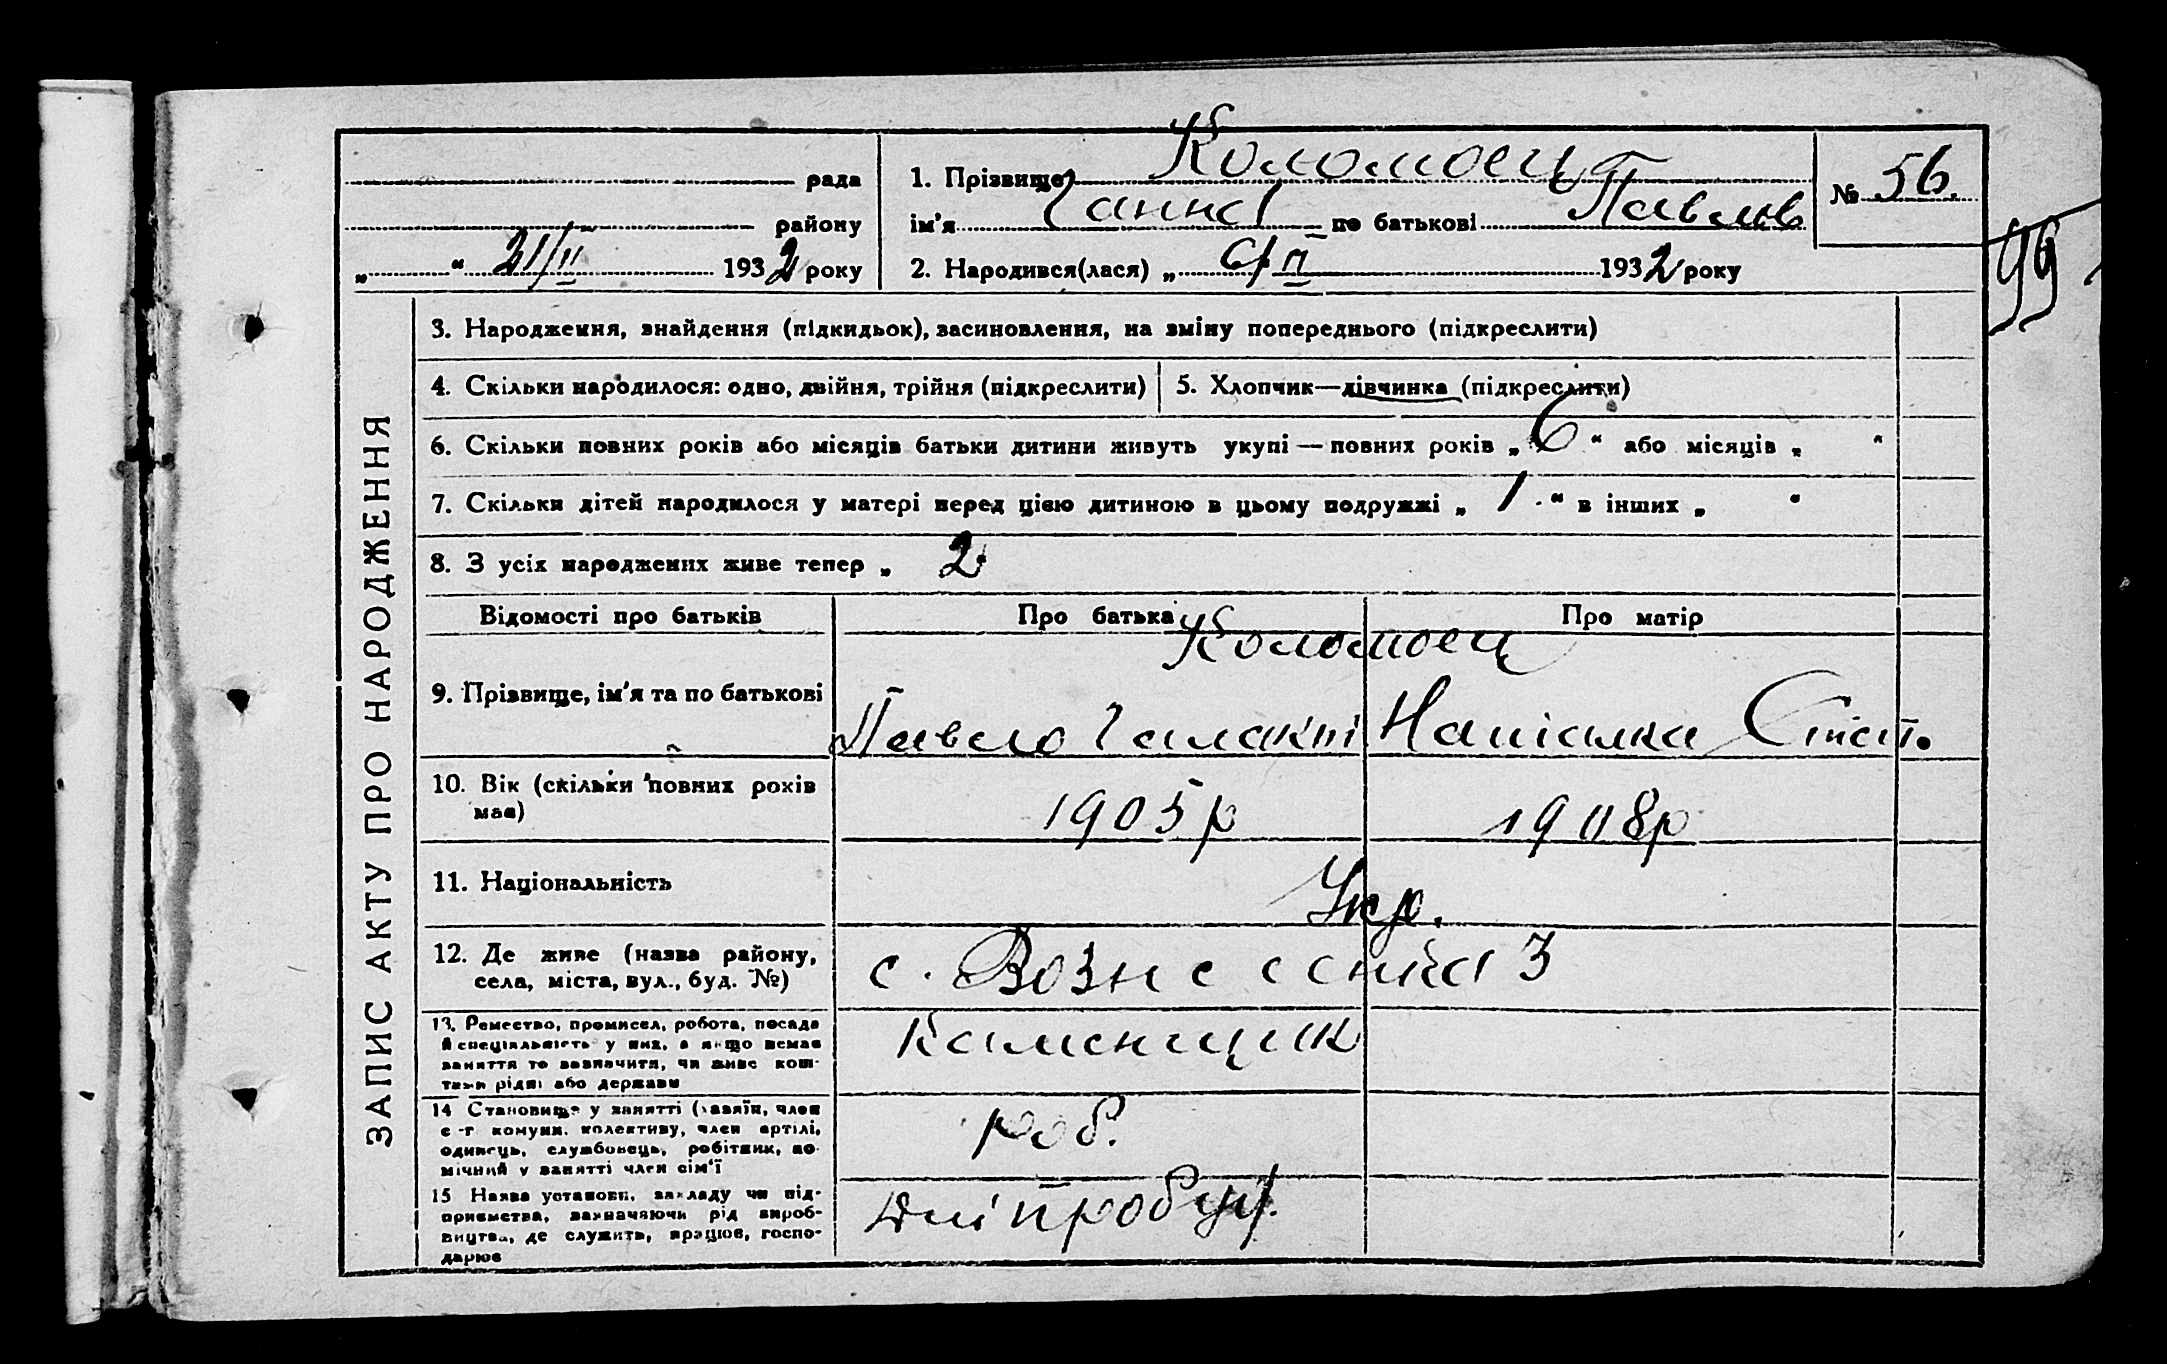 1. Прізвище Коломоец
рада
№ 56.
ім'я Ганна по батькові Павлів
району
99
„ “ 21/ІІ 1932 року
2. Народився(лася) „ 6/ІІ 1932 року
ЗАПИС АКТУ ПРО НАРОДЖЕННЯ
3. Народження, знайдення (підкидьок), засиновлення, на зміну попереднього (підкреслити)
4. Скільки народилося: одно, двійня, трійня (підкреслити) 5. Хлопчик—дівчинка (підкреслити)
6. Скільки повних років або місяців батьки дитини живуть укупі — повних років „ 6 “ або місяців „ “
7. Скільки дітей народилося у матері перед цією дитиною в цьому подружжі „ 1. “ в інших „ “
8. З усіх народжених живе тепер „ 2.
Відомості про батьків Про батька Про матір
Коломоец
9. Прізвище, ім'я та по батькові
Павло Галакті Наталка
10. Вік (скільки повних років
має)
1905р 1908р
11. Національність Укр.
12. Де живе (назва району,
села, міста, вул., буд. №)
с. Вознесенка 3
13. Ремество, промисел, робота, посада
й спеціяльність у них, а якщо немає
заняття то зазначити, чи живе кош-
тами рідні або держави
Каменщик
14 Становище у занятті (хазяїн, член
с.-г. комуни, колективу, член артілі,
одинець, службовець, робітник, по-
мічний у занятті член сім'ї
роб.
15 Назва установи, закладу чи під-
приємства, зазначаючи рід вироб-
ництва, де служить, працює, госпо-
дарює
Дніпробуд.